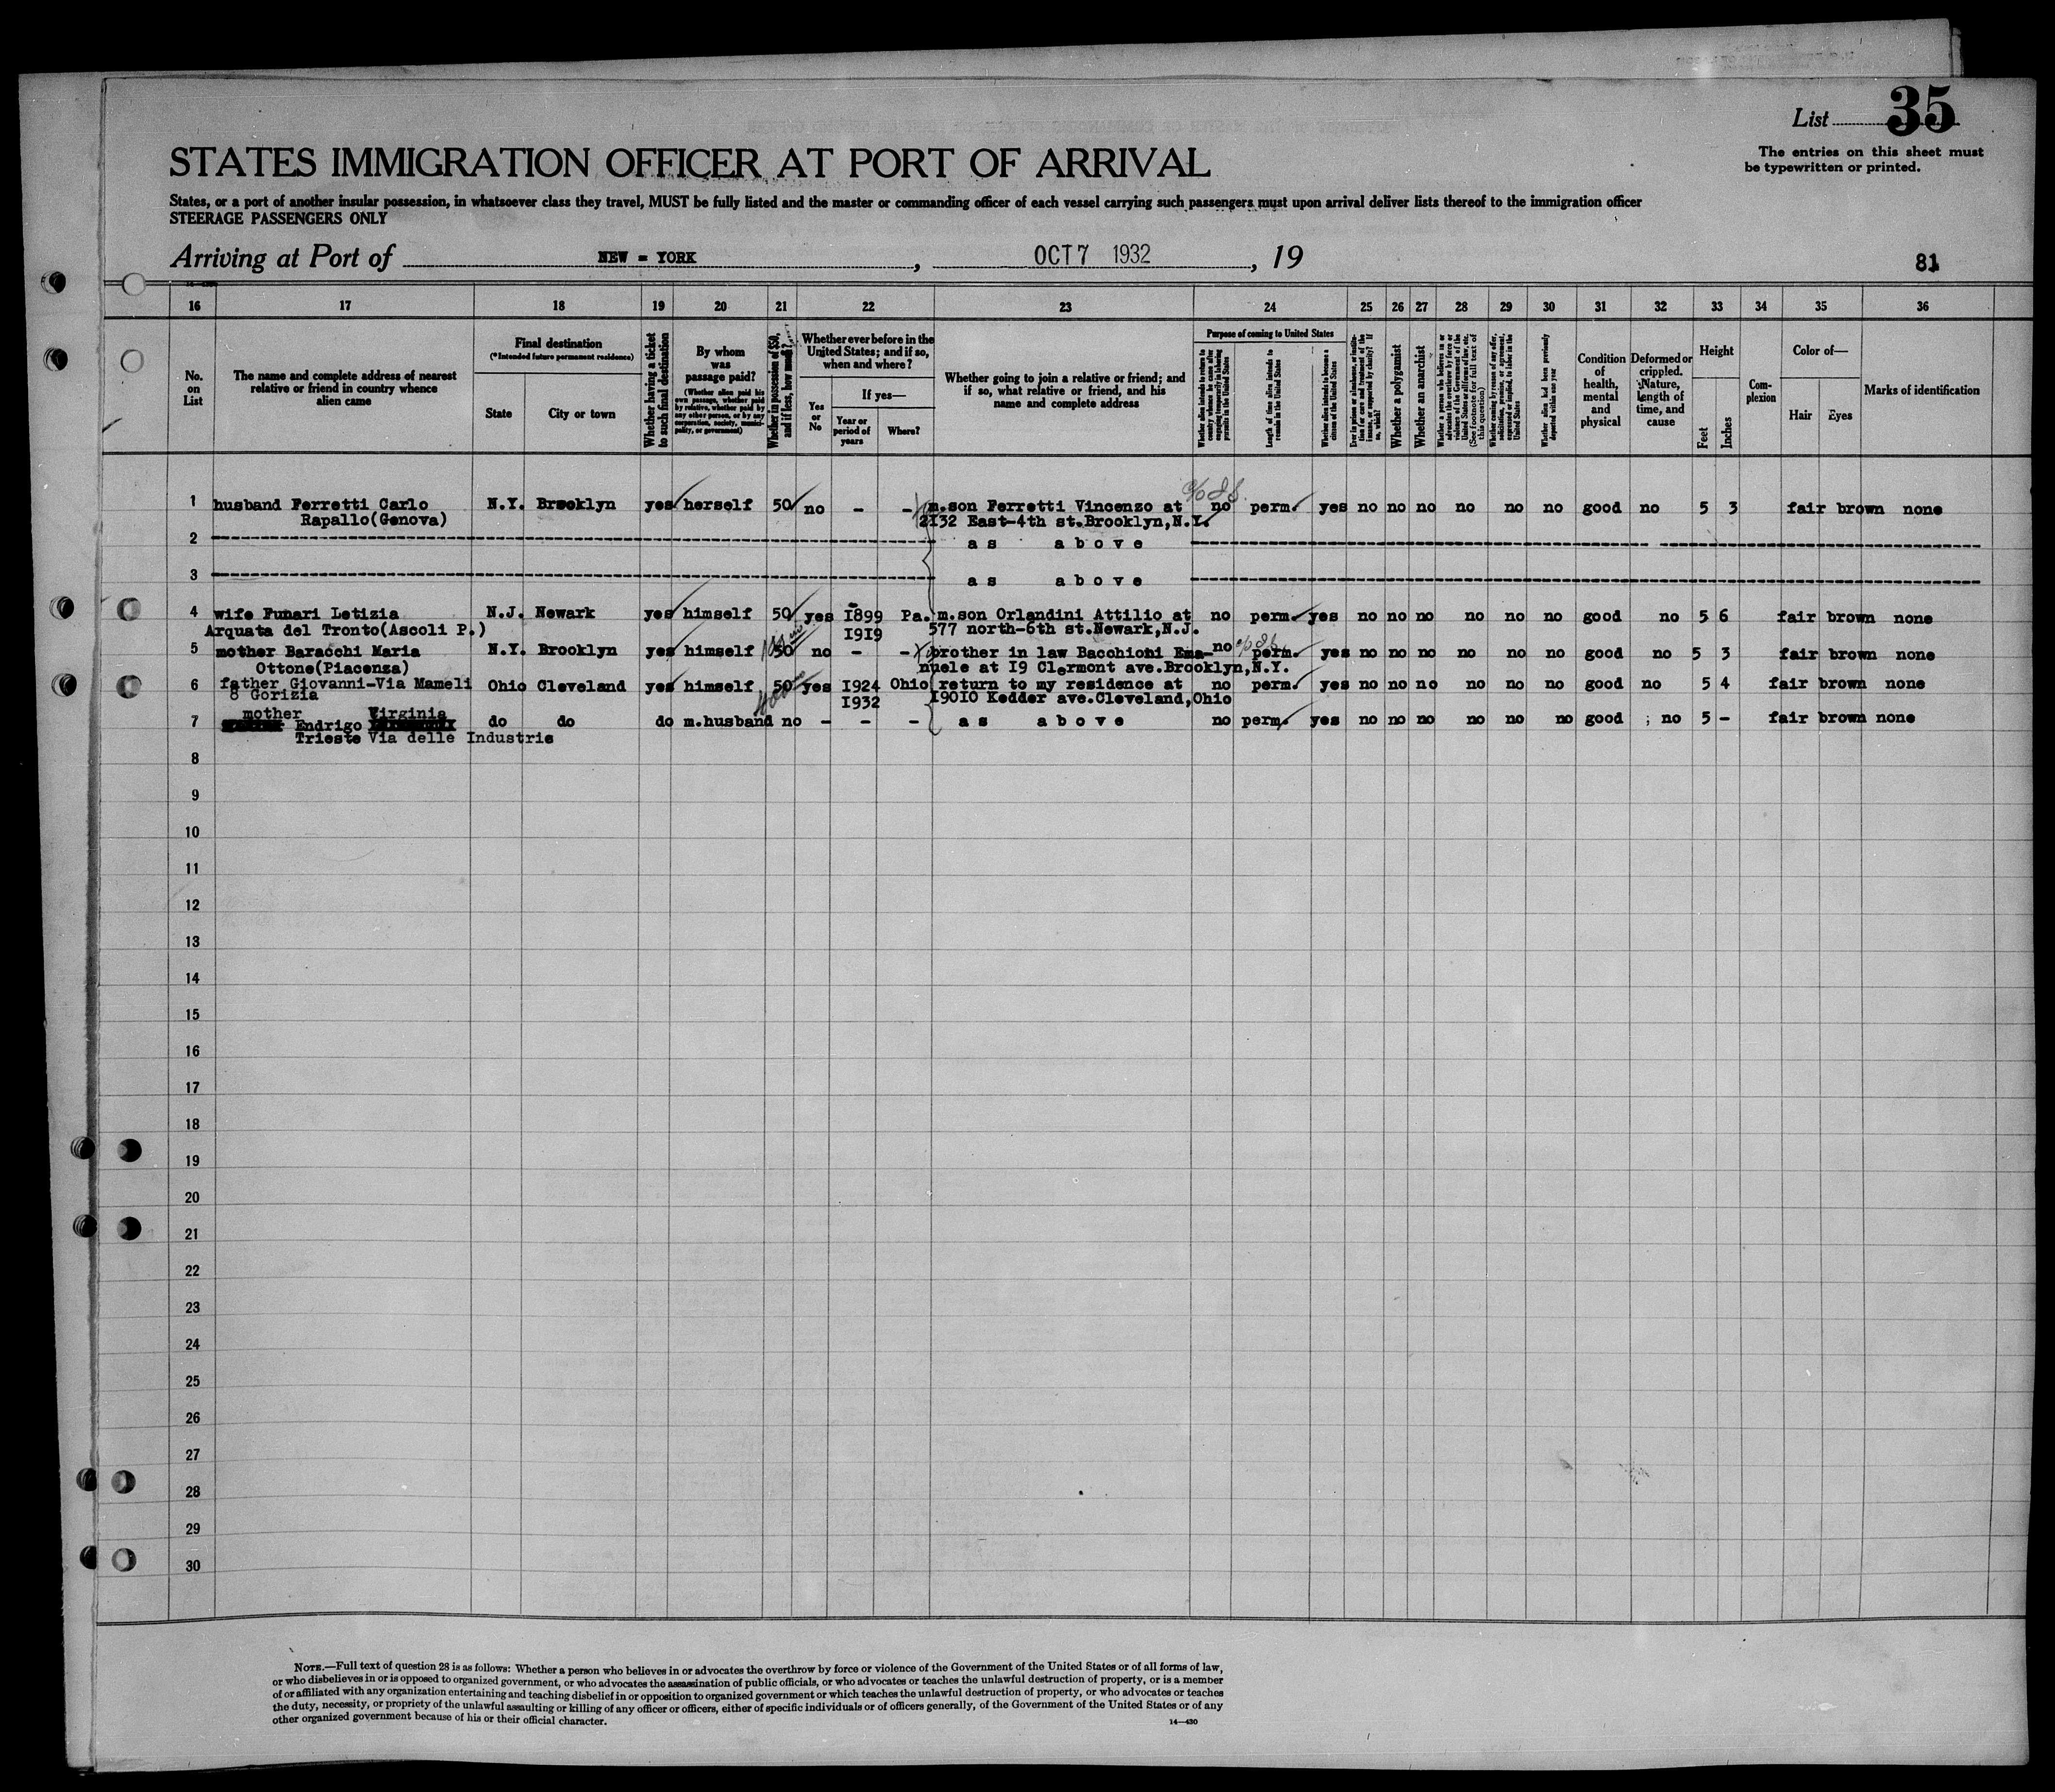 List 35
The entries on this sheet must
be typewritten or printed.
STATES IMMIGRATION OFFICER AT PORT OF ARRIVAL
States, or a port of another insular possession, in whatsoever class they travel, MUST be fully listed and the master or commanding officer of each vessel carrying such passengers must upon arrival deliver lists thereof to the immigration officer
STEERAGE PASSENGERS ONLY
Arriving at Port of NEW = YORK, OCT 7 1932, 19
81
16 17 18 19 20 21 22 23 24 25 26 27 28 29 30 31 32 33 34 35 36
No.
on
List
The name and complete address of nearest
relative or friend in country whence
alien came
Final destination
(*Intended future permanent residence)
State
City or town
Whether having a ticket
to such final destination
By whom
was
passage paid?
(Whether alien paid his
own passage, whether paid
by relative, whether paid by
any other person, or by any
corporation, society, munici-
pality, or government)
Whether in possession of $50,
and if less, how much?
Whether ever before in the
United States; and if so,
when and where?
Yes
or
No
If yes—
Year or
period of
years
Where?
Whether going to join a relative or friend; and
if so, what relative or friend, and his
name and complete address
Purpose of coming to United States
Whether alien intends to return to
country whence he came after
engaging temporarily in laboring
pursuits in the United States
Length of time alien intends to
remain in the United States
Whether alien intends to become a
citizen of the United States
Ever in prison or almshouse, or institu-
tion for care and treatment of the
insane, or supported by charity? If
so, which?
Whether a polygamist
Whether an anarchist
Whether a person who believes in or
advocates the overthrow by force or
violence of the Government of the
United States or all forms of law, etc.
(See footnote for full text of
this question)
Whether coming by reason of any offer,
solicitation, promise, or agreement,
expressed or implied, to labor in the
United States
Whether alien had been previously
deported within one year
Condition
of
health,
mental
and
physical
Deformed or
crippled.
Nature,
length of
time, and
cause
Height
Feet
Inches
Com-
plexion
Color of—
Hair
Eyes
Marks of identification
1 husband Ferretti Carlo N.Y. Brooklyn yes herself 50 no - - m.son Ferretti Vincenzo at no perm. yes no no no no no no good no 5 3 fair brown none
Rapallo(Genova) 2I32 East-4th st.Brooklyn,N.Y.
2 as above
3 as above
4 wife Funari Letizia N.J. Newark yes himself 50 yes I899 Pa. m.son Orlandini Attilio at no perm. yes no no no no no no good no 5 6 fair brown none
Arquata del Tronto(Ascoli P.) I9I9 577 north-6th st.Newark,N.J.
5 mother Baracchi Maria N.Y. Brooklyn yes himself 50 no - - brother in law Bacchioni Ema- no perm. yes no no no no no no good no 5 3 fair brown none
Ottone(Piacenza) nuele at I9 Clermont ave.Brooklyn,N.Y.
6 father Giovanni-Via Mameli Ohio Cleveland yes himself 50 yes I924 Ohio return to my residence at no perm. yes no no no no no no good no 5 4 fair brown none
8 Gorizia I932 I90I0 Kedder ave.Cleveland,Ohio
mother Virginia
7 Endrigo do do do m.husband no - - - as above no perm. yes no no no no no no good no 5 - fair brown none
Trieste Via delle Industrie
8
9
10
11
12
13
14
15
16
17
18
19
20
21
22
23
24
25
26
27
28
29
30
NOTE.—Full text of question 28 is as follows: Whether a person who believes in or advocates the overthrow by force or violence of the Government of the United States or of all forms of law,
or who disbelieves in or is opposed to organized government, or who advocates the assassination of public officials, or who advocates or teaches the unlawful destruction of property, or is a member
of or affiliated with any organization entertaining and teaching disbelief in or opposition to organized government or which teaches the unlawful destruction of property, or who advocates or teaches
the duty, necessity, or propriety of the unlawful assaulting or killing of any officer or officers, either of specific individuals or of officers generally, of the Government of the United States or of any
other organized government because of his or their official character.
14—430